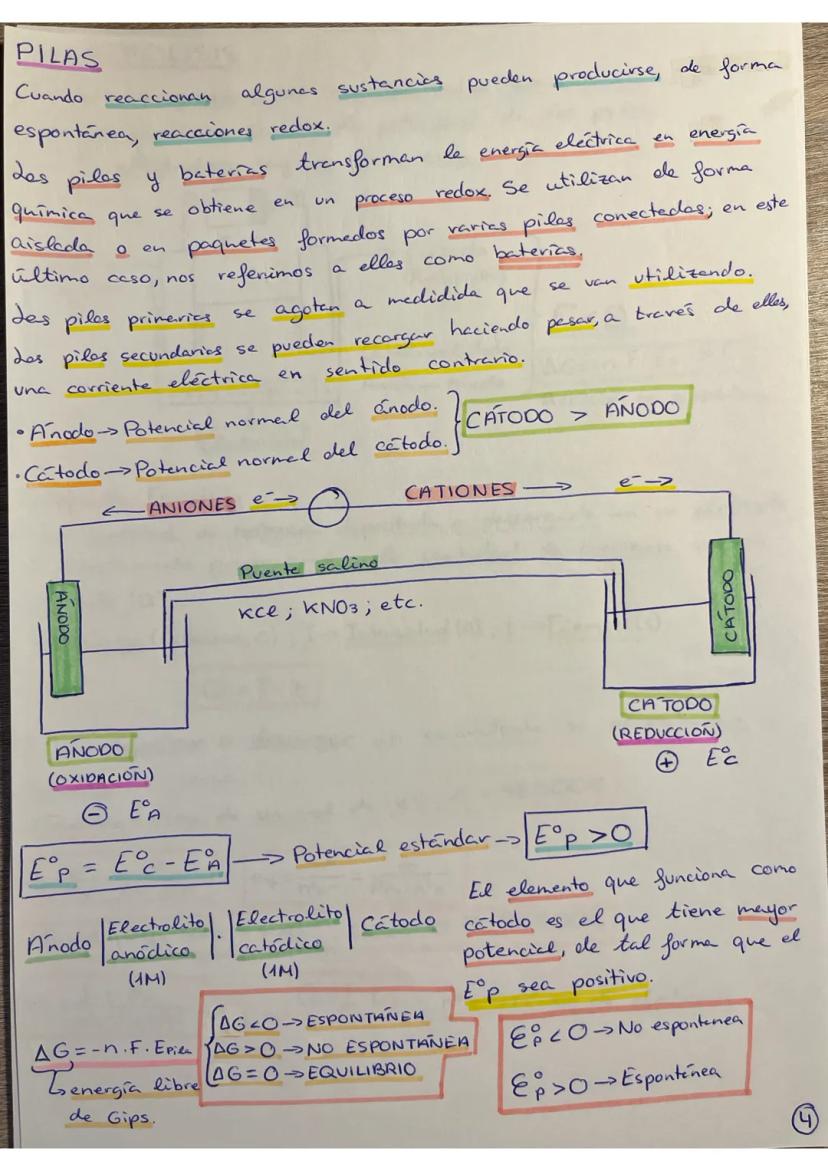 PILAS
Cuando reaccionan algunas sustancias pueden producirse, de forma
espontánea, reacciones redox.
Las pilas y baterías transforman la energía eléctrica en energía
química que se obtiene en un proceso redox. Se utilizan de forma
aislada o en paquetes formados por varias pilas conectadas; en este
último caso, nos referimos a ellas como baterías.
Las pilas primarias se agotan a medidida que se van utilizando.
Las pilas secundarias se pueden recargar haciendo pasar, a través de ellas,
una corriente eléctrica en sentido contrario.
• Ánodo → Potencial normal del ánodo.
• Cátodo → Potencial normal del cátodo.
} CÁTODO > ÁNODO
← ANIONES e⁻→ CATIONES → e⁻→
Puente salino
KCl ; KNO₃ ; etc.
ÁNODO
CÁTODO
ÁNODO
(OXIDACIÓN)
⊖ E°A
CÁTODO
(REDUCCIÓN)
⊕ E°C
E°P = E°C - E°A → Potencial estándar → E°P > 0
Ánodo | Electrolito anódico (1M) | · | Electrolito catódico (1M) | Cátodo
El elemento que funciona como
cátodo es el que tiene mayor
potencial, de tal forma que el
E°P sea positivo.
ΔG = -n.F.Epila
↳ energía libre
de Gips.
ΔG < 0 → ESPONTÁNEA
ΔG > 0 → NO ESPONTÁNEA
ΔG = 0 → EQUILIBRIO
E°P < 0 → No espontanea
E°P > 0 → Espontánea
4